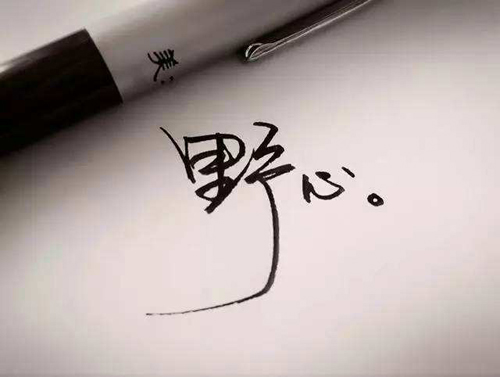 美
野心。